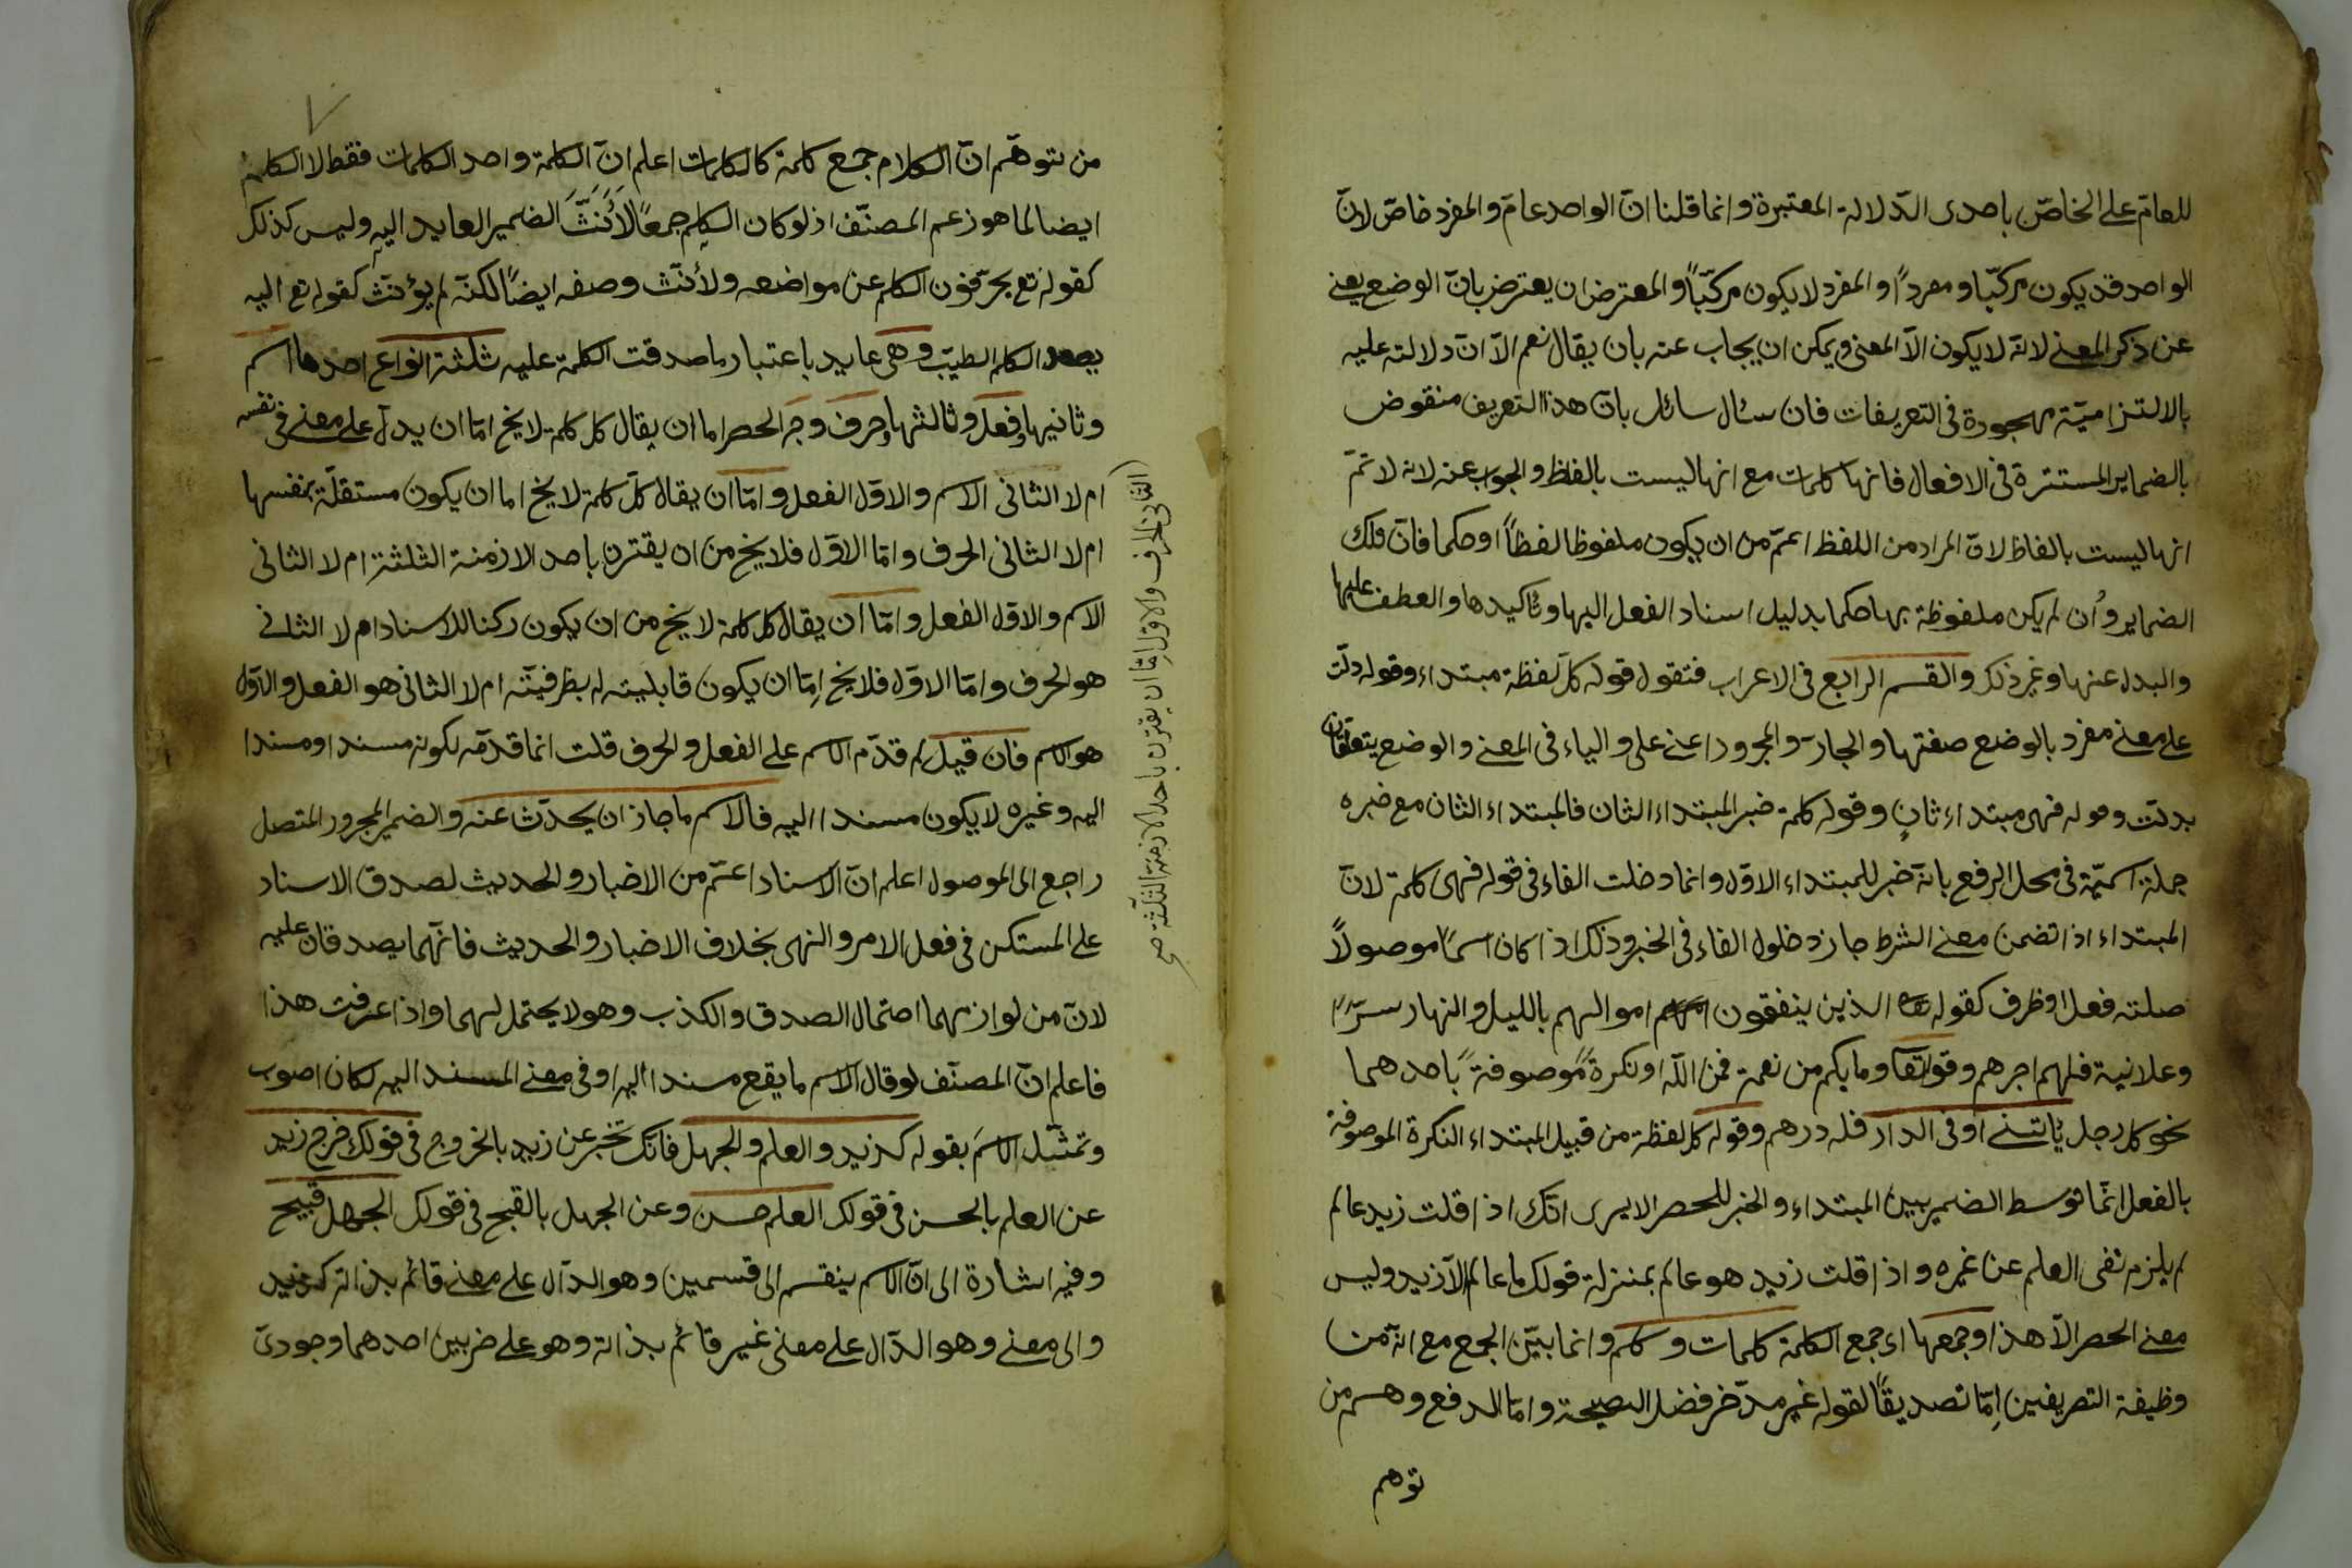 للعامّ علی الخاصّ باحدی الدّلالة المعتبرة وانما قلنا انّ الواحد عامّ والمفرد خاصّ لانّ
الواحد قد يكون مركّبا ومفرداً والمفرد لا يكون مركّباً والمعترض ان يعترض بانّ الوضع يغنی
عن ذكر المعنی لانّه لا يكون الاّ المعنی ويمكن ان يجاب عنه بان يقال نعم الاّ انّ دلالته عليه
بالالتزاميّة مهجورة فی التعريفات فان سئال سائل بانّ هذا التعريف منقوض
بالضماير المستترة فی الافعال فانها كلمات مع انها ليست بالفاظ والجوب عنه لانه لا تمّ
انها ليست بالفاظ لانّ المراد من اللفظ اعمّ من ان يكون ملفوظا لفظاً او حكما فانّ تلك
الضماير وان لم يكن ملفوظة بها حكما بدليل اسناد الفعل اليها وتاكيدها والعطف عليها
والبدل عنها وغير ذلك والقسم الرابع فی الاعراب فتقول قوله كلّ لفظة مبتداء وقوله دلّت
علی معنی مفرد بالوضع صفتها والجارّ والمجرور اعنی علی والباء فی المعنی والوضع يتعلقان
بدلّت وقوله فهی مبتداء ثانٍ وقوله كلمة خبر المبتداء الثان فالمبتداء الثان مع خبره
جملة اسميّة فی محل الرفع بانّه خبر للمبتداء الاوّل وانما دخلت الفاء فی قوله فهی كلمة لانّ
المبتداء اذا تضمن معنی الشرط جاز دخلول الفاء فی الخبر وذلك اذا كان اسماً موصولاً
صلته فعل او ظرف كقوله الذين ينفقون اموالهم بالليل والنهار سرّاً
وعلانية فلهم اجرهم وقوله تعا وما بكم من نعمة فمن اللّه او نكرةً موصوفةً باحدهما
نحو كل رجل ياتينی او فی الدار فله درهم وقوله كل لفظة من قبيل المبتداء النكرة الموصوفة
بالفعل انّما توسط الضمير بين المبتداء والخبر للحصر الا يری انّك اذا قلت زيد عالم
لم يلزم نفی العلم عن غيره واذا قلت زيد هو عالم بمنزلة قولك ما عالم الاّ زيد وليس
معنی الحصر الاّ هذا وجمعها ای جمع الكلمة كلمات وكلم وانما بيّن الجمع مع انّه من
وظيفة التصريفين اِمّا تصديقاً لقوله غير مدّخر فضل النصيحة وامّا لدفع وهم من
توهم
من توهّم انّ الكلام جمع كلمة كالكلمات اعلم انّ الكلمة واحد الكلمات فقط لا الكلم
ايضا لما هو زعم المصنّف اذ لو كان الكلم جمعًا لأُنّثَ الضمير العايد اليه وليس كذلك
كقوله تع يحرّفون الكلم عن مواضعه ولأنّث وصفه ايضاً لكنّه لم يؤنّث كقوله تع اليه
يصعد الكلم الطيّب وهی عايد باعتبار ما صدقت الكلمة عليه ثلثة انواع احدها اسم
وثانيها فعل وثالثها حرف وجه الحصر اما ان يقال كل كلمة لا يخ امّا ان يدلّ علی معنی فی نفسه
ام لا الثانی الاسم والاوّل الفعل وامّا ان يقال كلّ كلمة لا يخ اما ان يكون مستقلّة بنفسها
ام لا الثانی الحرف وامّا الاوّل فلا يخ من ان يقترن باحد الازمنة الثلثة ام لا الثانی
الاسم والاوّل الفعل وامّا ان يقال كل كلمة لا يخ من ان يكون ركنا للاسناد ام لا الثانی
هو الحرف وامّا الاوّل فلا يخ اِمّا ان يكون قابلية له بطرفيتّه ام لا الثانی هو الفعل والاوّل
هو الاسم فان قيل لم قدّم الاسم علی الفعل والحرف قلت انما قدّمه لكونه مسندا ومسندا
اليه وغيره لا يكون مسندا اليه فالاسم ما جاز ان يحدّث عنه والضمير المجرور المتصل
راجع الی الموصول اعلم انّ الاسناد اعمّ من الاخبار والحديث لصدق الاسناد
علی المستكن فی فعل الامر والنهی بخلاف الاخبار والحديث فانّهما يصدقان عليه
لانّ من لوازمهما احتمال الصدق والكذب وهو لا يحتمل لهما واذا عرفت هذا
فاعلم انّ المصنّف لو قال الاسم ما يقع مسندا اليه او فی معنی المسند اليه لكان اصوب
وتمثّل الاسمَ بقوله كزيد والعلم والجهل فانّك تخبر عن زيد بالخروج فی قولك خرج زيد
عن العلم بالحسن فی قولك العلم حسن وعن الجهل بالقبح فی قولك الجهل قبيح
وفيه اشارة الی انّ الاسم ينقسم الی قسمين وهو الدّال علی معنی قائم بذاته كزيد
والی معنی وهو الدّال علی معنی غير قائم بذاته وهو علی ضربين احدهما وجودیّ
الثانی الحرف والاوّل اِمّا ان يقترن باحد الازمنة الثلثة صح